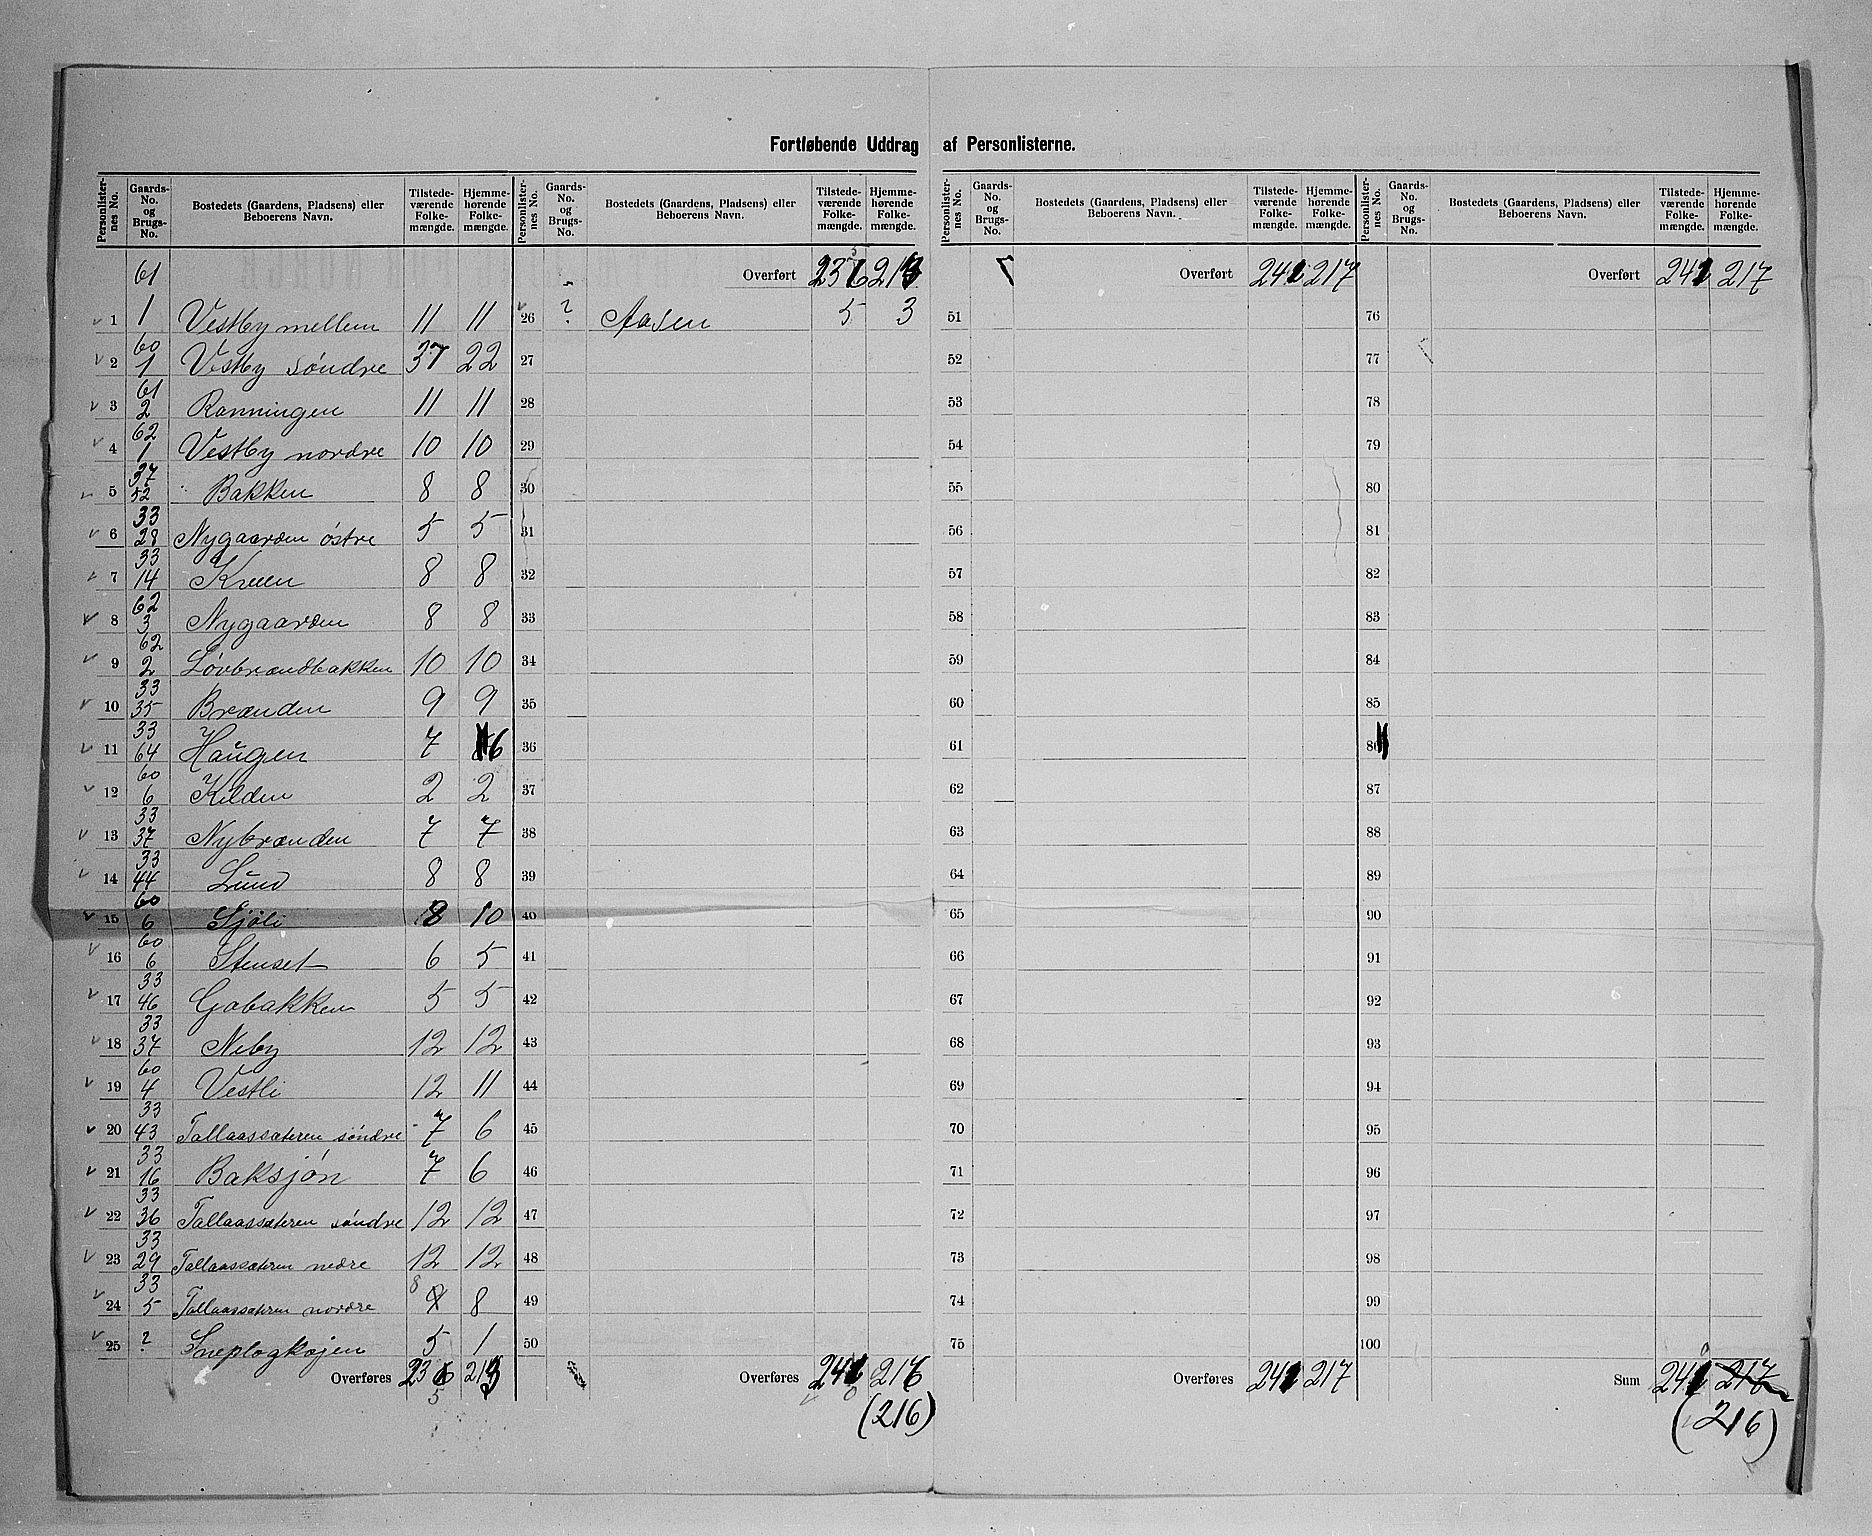 Fortløbende Uddrag af Personlisterne.
Personlisternes No. Gaards-No. og Brugs-No. Bostedets (Gaardens, Pladsens) eller Beboerens Navn. Tilstedeværende Folkemængde. Hjemmehørende Folkemængde.
1 61 1 Vestby mellem 11 11
2 60 1 Vestby søndre 37 22
3 61 2 Rønningen 11 11
4 62 1 Vestby nordre 10 10
5 37 52 Bakken 8 8
6 33 28 Nygaarden østre 5 5
7 33 14 Kruen 8 8
8 62 3 Nygaarden 8 8
9 62 2 Løvbrændbakken 10 10
10 33 35 Brænden 9 9
11 33 64 Haugen 7 6
12 60 6 Kilden 2 2
13 33 37 Nybrænden 7 7
14 33 44 Lund 8 8
15 60 6 Sjøli 8 10
16 60 6 Stenset 6 5
17 33 46 Gobakken 5 5
18 33 37 Neby 12 12
19 60 4 Vestli 12 11
20 33 43 Tallaassæteren søndre 7 6
21 33 16 Baksjøn 7 6
22 33 36 Tallaassæteren søndre 12 12
23 33 29 Tallaassæteren nedre 12 12
24 33 5 Tallaassæteren nordre 8 8
25 ? Sneplogkojen 5 1
Overføres 236 213
5
Personlisternes No. Gaards-No. og Brugs-No. Bostedets (Gaardens, Pladsens) eller Beboerens Navn. Tilstedeværende Folkemængde. Hjemmehørende Folkemængde.
Overført 236 213
26 ? Aasen 5 3
27
28
29
30
31
32
33
34
35
36
37
38
39
40
41
42
43
44
45
46
47
48
49
50
Overføres 241 216
0
(216)
Personlisternes No. Gaards-No. og Brugs-No. Bostedets (Gaardens, Pladsens) eller Beboerens Navn. Tilstedeværende Folkemængde. Hjemmehørende Folkemængde.
Overført 241 217
51
52
53
54
55
56
57
58
59
60
61
62
63
64
65
66
67
68
69
70
71
72
73
74
75
Overføres 241 217
Personlisternes No. Gaards-No. og Brugs-No. Bostedets (Gaardens, Pladsens) eller Beboerens Navn. Tilstedeværende Folkemængde. Hjemmehørende Folkemængde.
Overført 241 217
76
77
78
79
80
81
82
83
84
85
86
87
88
89
90
91
92
93
94
95
96
97
98
99
100
0
Sum 241 217
(216)